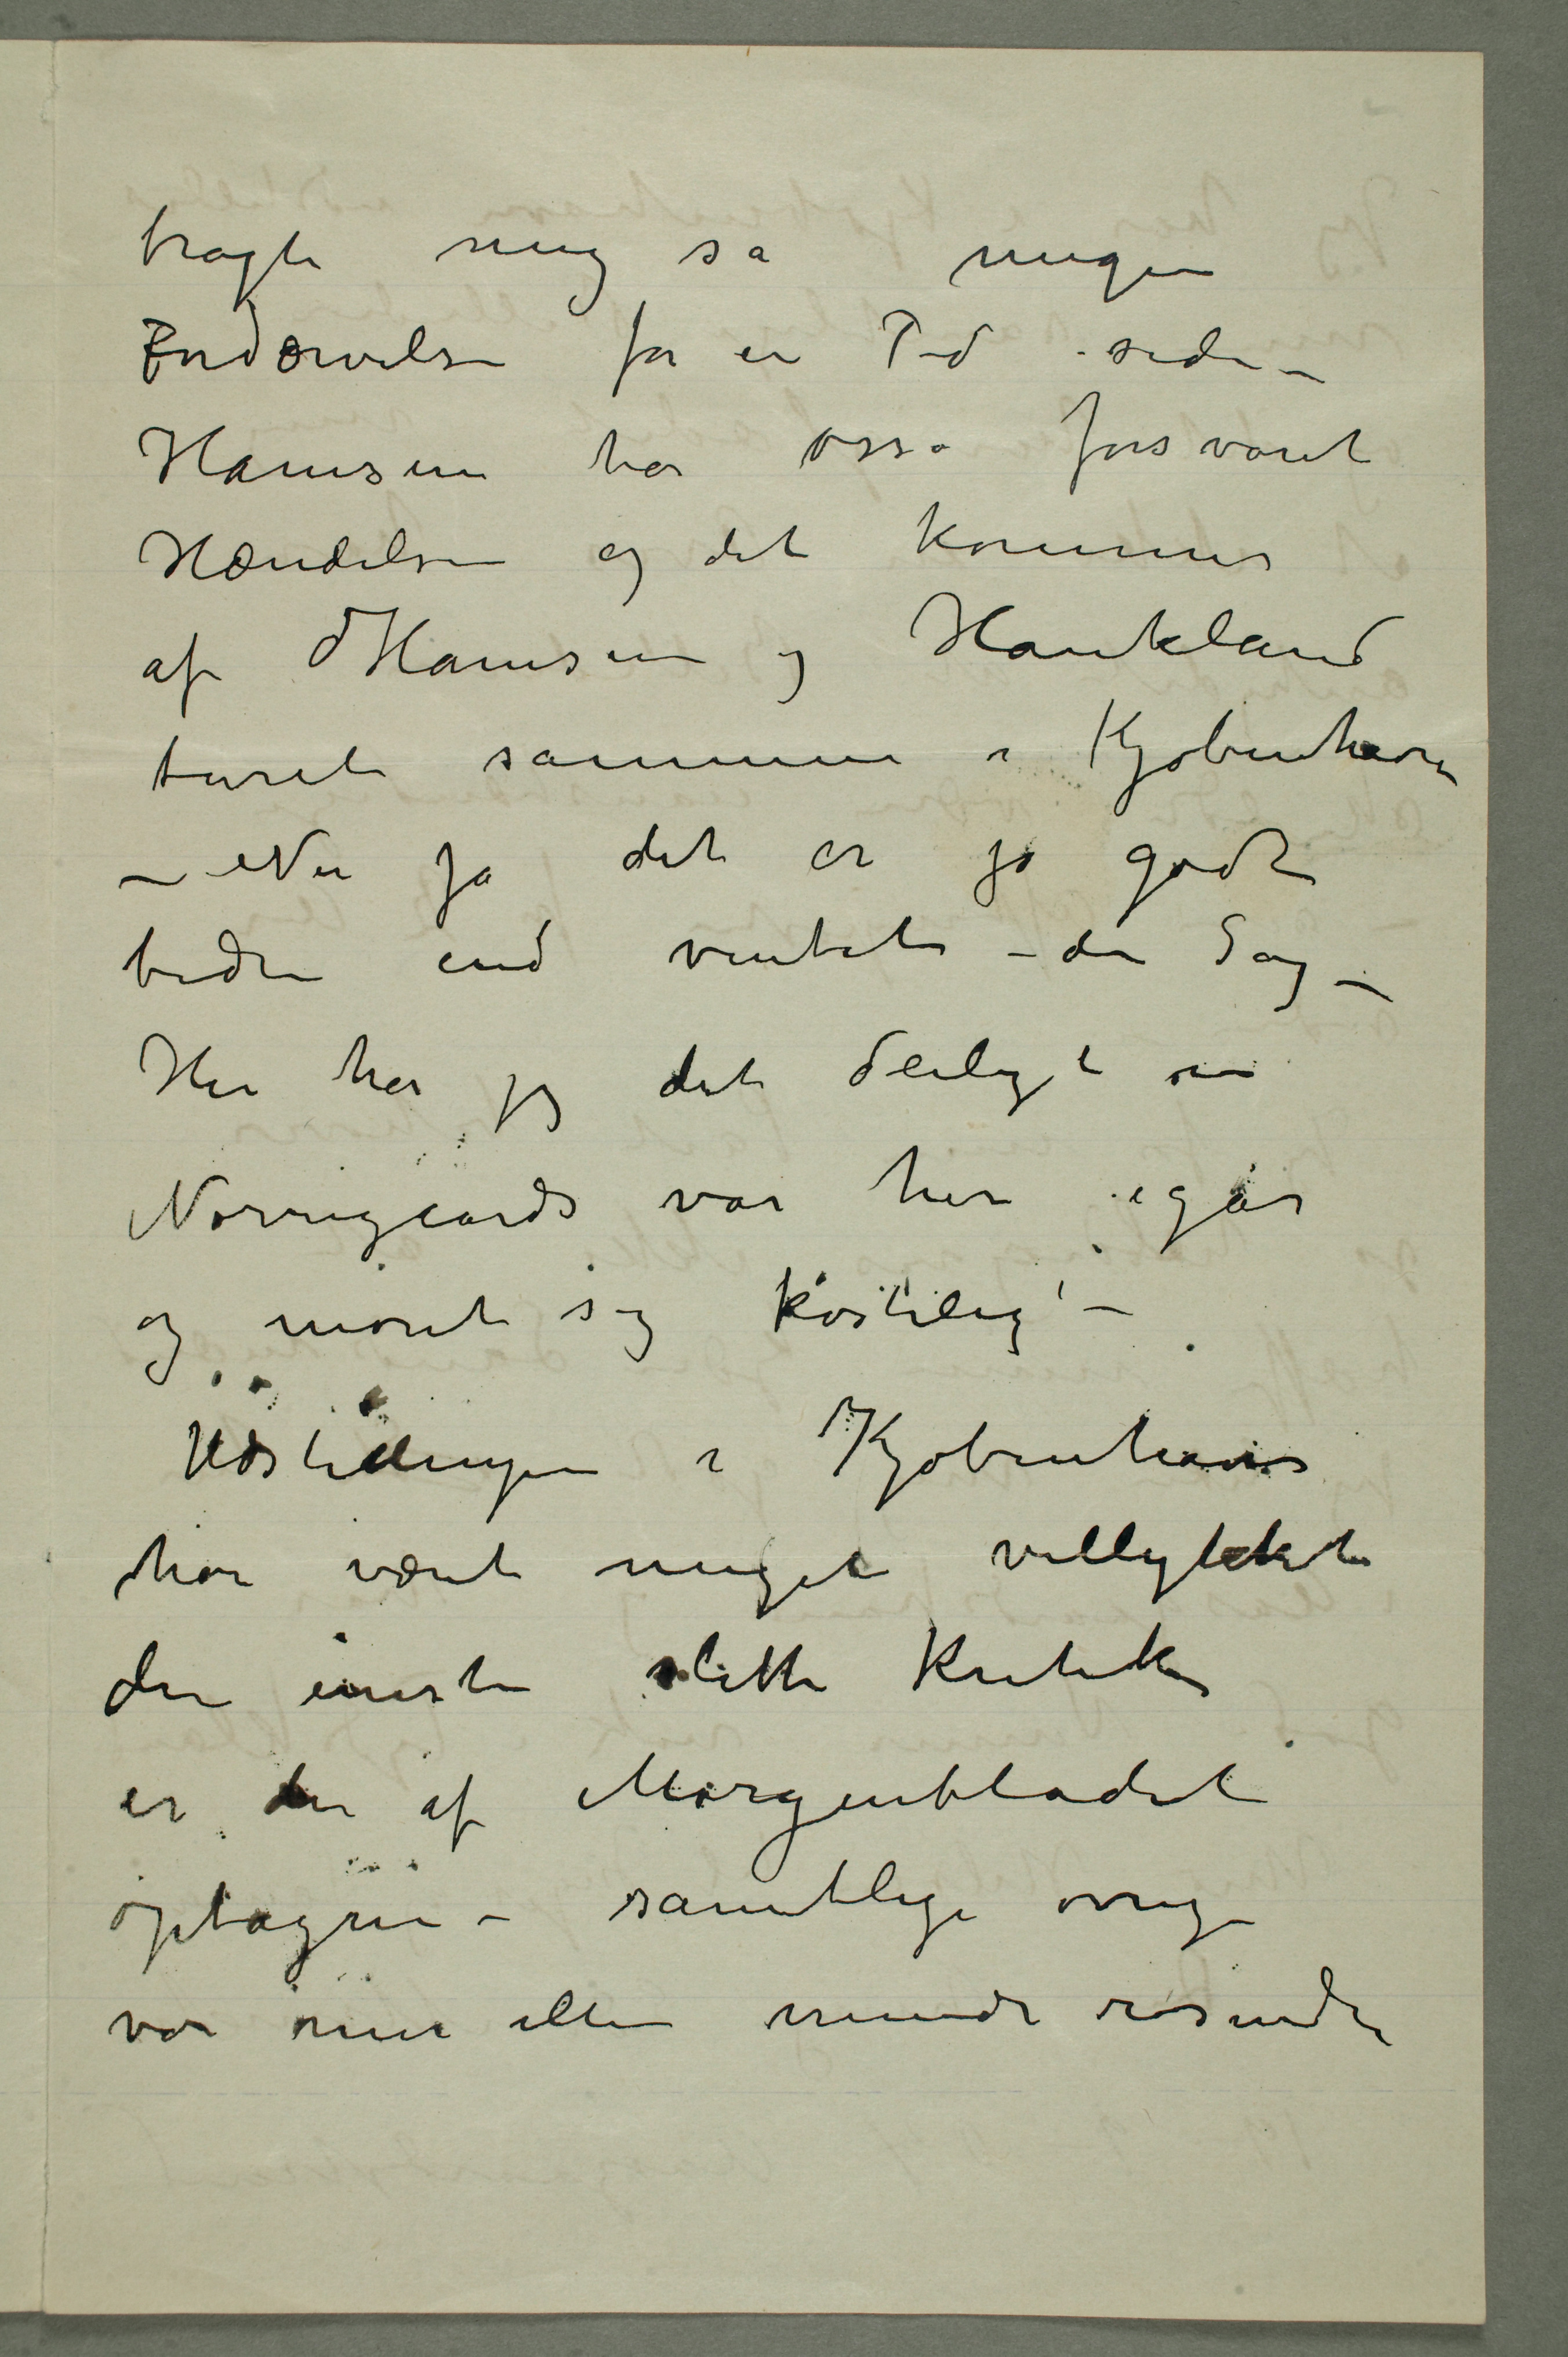 bragte mig så megen
Fordærvelse for en Tid siden –
Hamsun har osså forsvaret
Hændelsen og det kommer
af Hamsun og Haukland
turet sammen i Kjøbenhavn
– Nu ja det er jo godt
bedre end ventet – den Sag –
Her har jeg det deiligt –
Nørregaards var her igår
og moret sig kosteligt –
Udstillingen i Kjøbenhavn
har været meget vellykket
den eneste slette Kritik
er den af Morgenbladet
optagne – samtlige øvrige
var mer eller mindre rosende